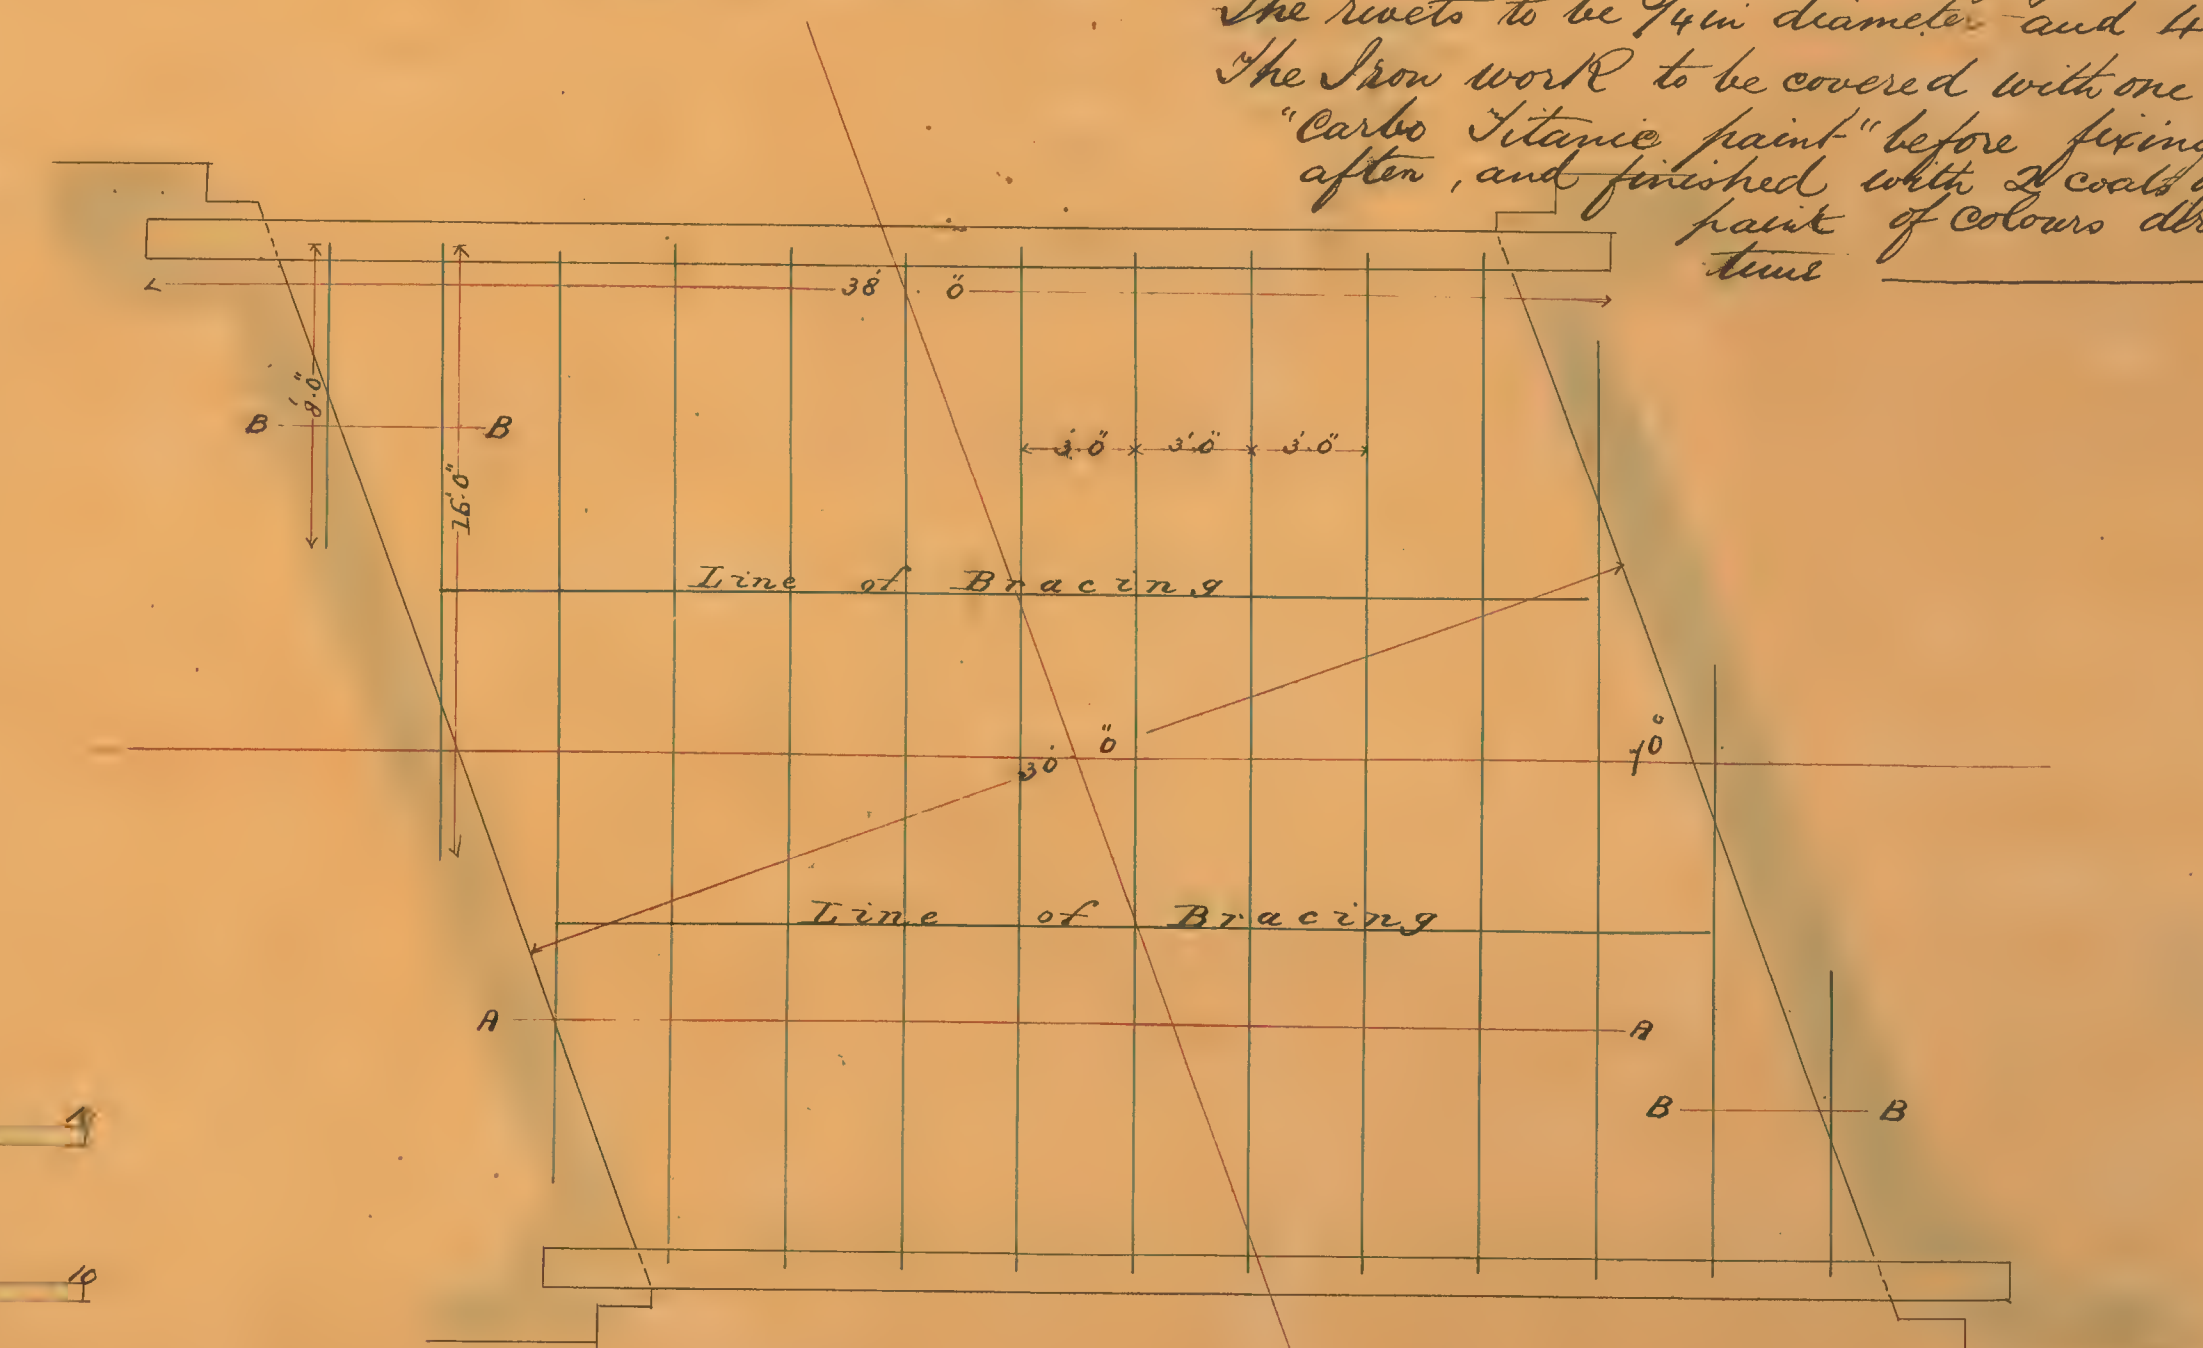 The rivets to be 3/4 in diameter and 4
The Iron work to be covered with one
"Carbo Titanic paint" before fixing
after, and finished with 2 coats
paint of colours
time
38' 0"
8'.0"
B B
16'.0"
3'.0" 3'.0" 3'.0"
Line of Bracing
30' 0"
70°
Line of Bracing
A A
B B
10